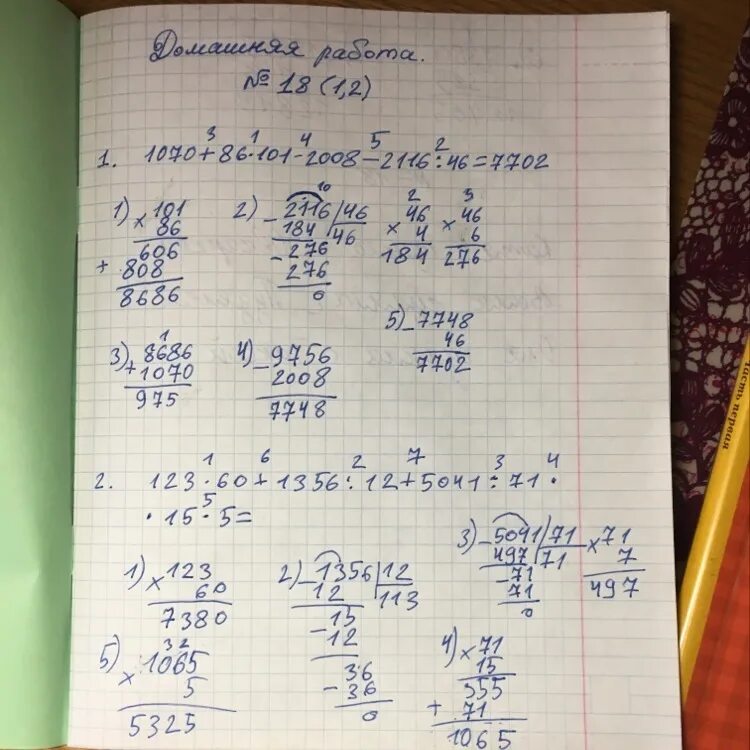 Домашняя работа.
№ 18 (1,2)
3 1 4 5 2
1. 1070+86·101-2008-2116:46=7702
1) × 101
86
606
+ 808
8686
2) 10
- 2116 / 46
184 46
- 276
276
0
2
× 46
4
184
3
× 46
6
276
3) 1
+ 8686
1070
975
4) - 9756
2008
7748
5) - 7748
46
7702
1 6 2 7 3 4
2. 123·60+1356:12+5041:71·
5
·15·5=
1) × 123
60
7380
2) - 1356 12
12 113
- 15
- 12
36
- 36
0
3) - 5041 71
497 71
- 71
71
0
× 71
7
497
5) 32
× 1065
5
5325
4) × 71
15
355
+ 71
1065
часть первая